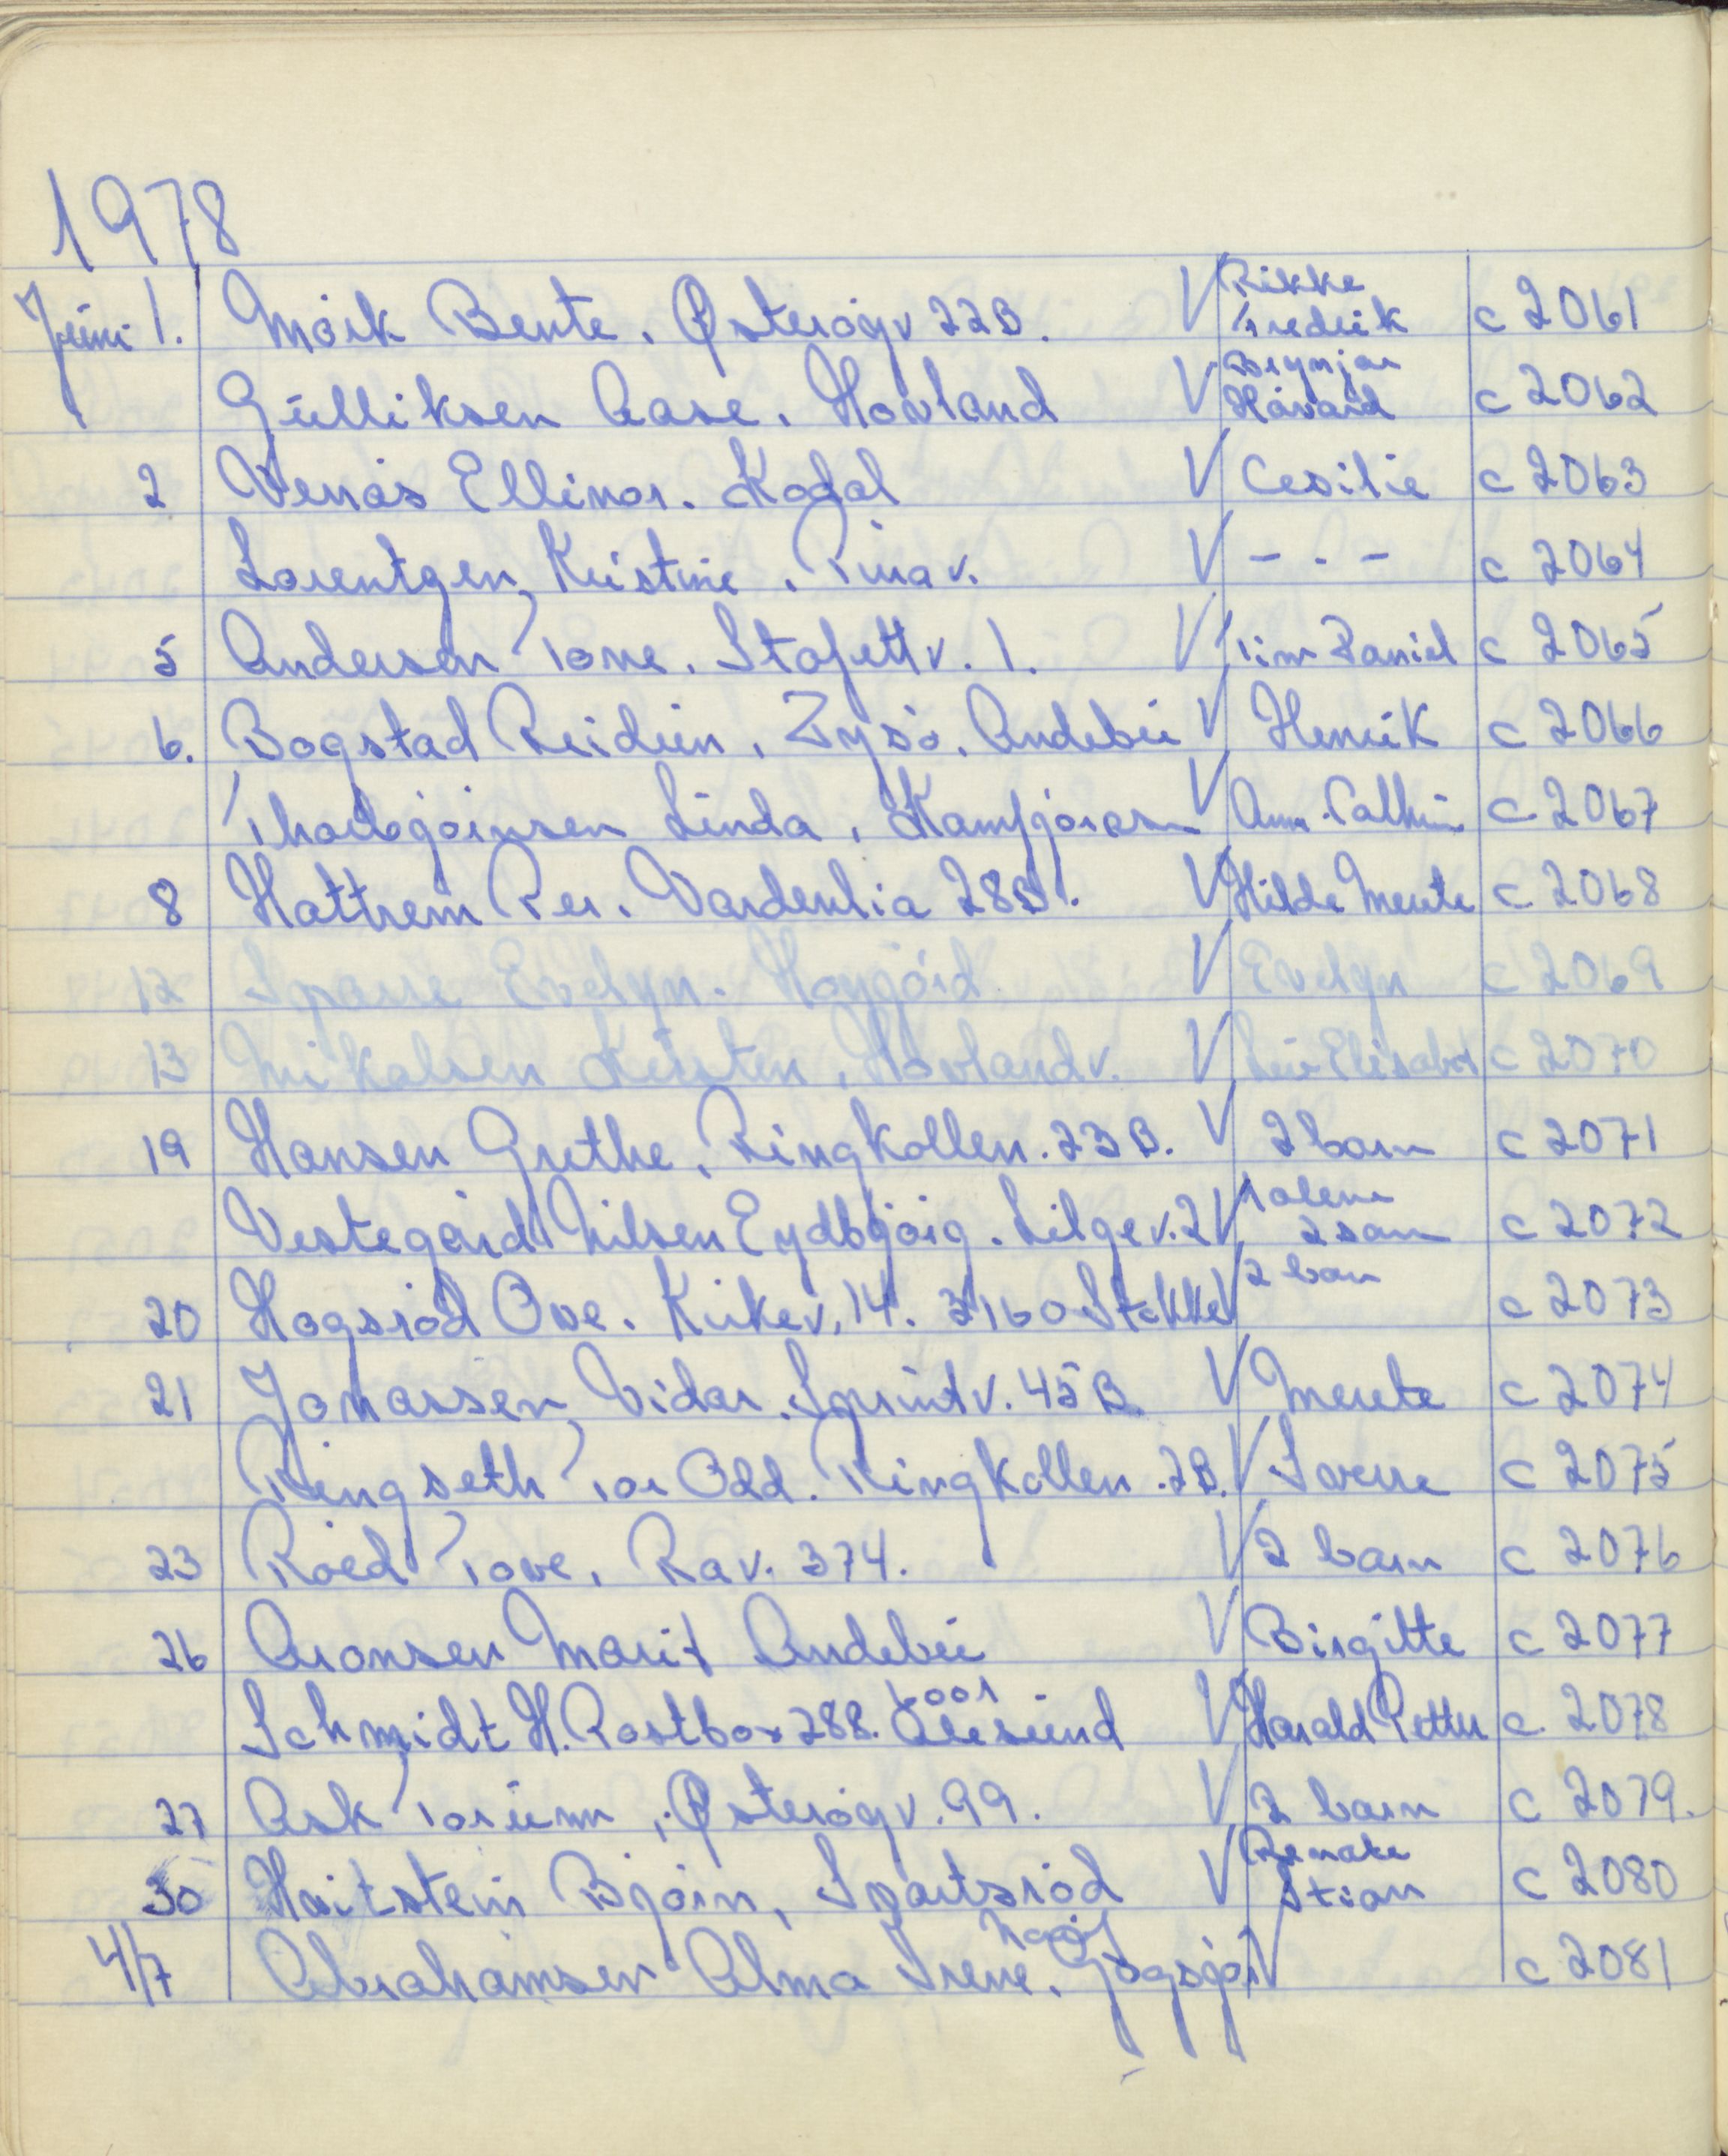 1978
Juni 1. Mørk Bente. Østerøyv 22B. V Rikke Fredrik c 2061
Gulliksen Aase. Hovland V Brynjar Håvard c 2062
2 Venås Ellinor. Kodal V Cesilie c 2063
Lorentzen Kristine. Furav. V - - - c 2064
5 Andersen Tone. Stafettv. 1. V Tim Daniel c 2065
6. Bogstad Reidun. Dysø. Andebu V Henrik c 2066
Thorbjørnsen Linda. Kamfjordsn V Ann. Cathrin c 2067
8 Hattrem Per. Vardenlia 28B. V Hilde Merete c 2068
12 Sparre Evelyn. Haygård V Evelyn c 2069
13 Mikalsen Kirsten. Hovlandv. V Siv Elisabet c 2070
19 Hansen Grethe. Ringkollen. 23B. V 2 barn c 2071
Vestegård Nilsen Eydbjørg. Liljev. 2 V Malene 2 sam c 2072
20 Hogsrød Ove. Kirkev. 14. 3160 Stokke V 2 barn c 2073
21 Johassen Vidar. Sprintv. 45B. V Merete c 2074
Ringseth Tor Odd. Ringkollen. 2B. V Sverre c 2075
23 Røed Tove. Rav. 374. V 2 barn c 2076
26 Aronsen Marit Andebu V Birgitte c 2077
Schmidt H. Postbox 288. 6001 Ålesund V Harald Petter c 2078
27 Ask Torunn, Østerøyv. 99. V 2 barn c 2079.
30 Hvitstein Bjørn, Spartsrød V Renate Stian c 2080
4/7 Abrahamsen Alma Irene. V c 2081